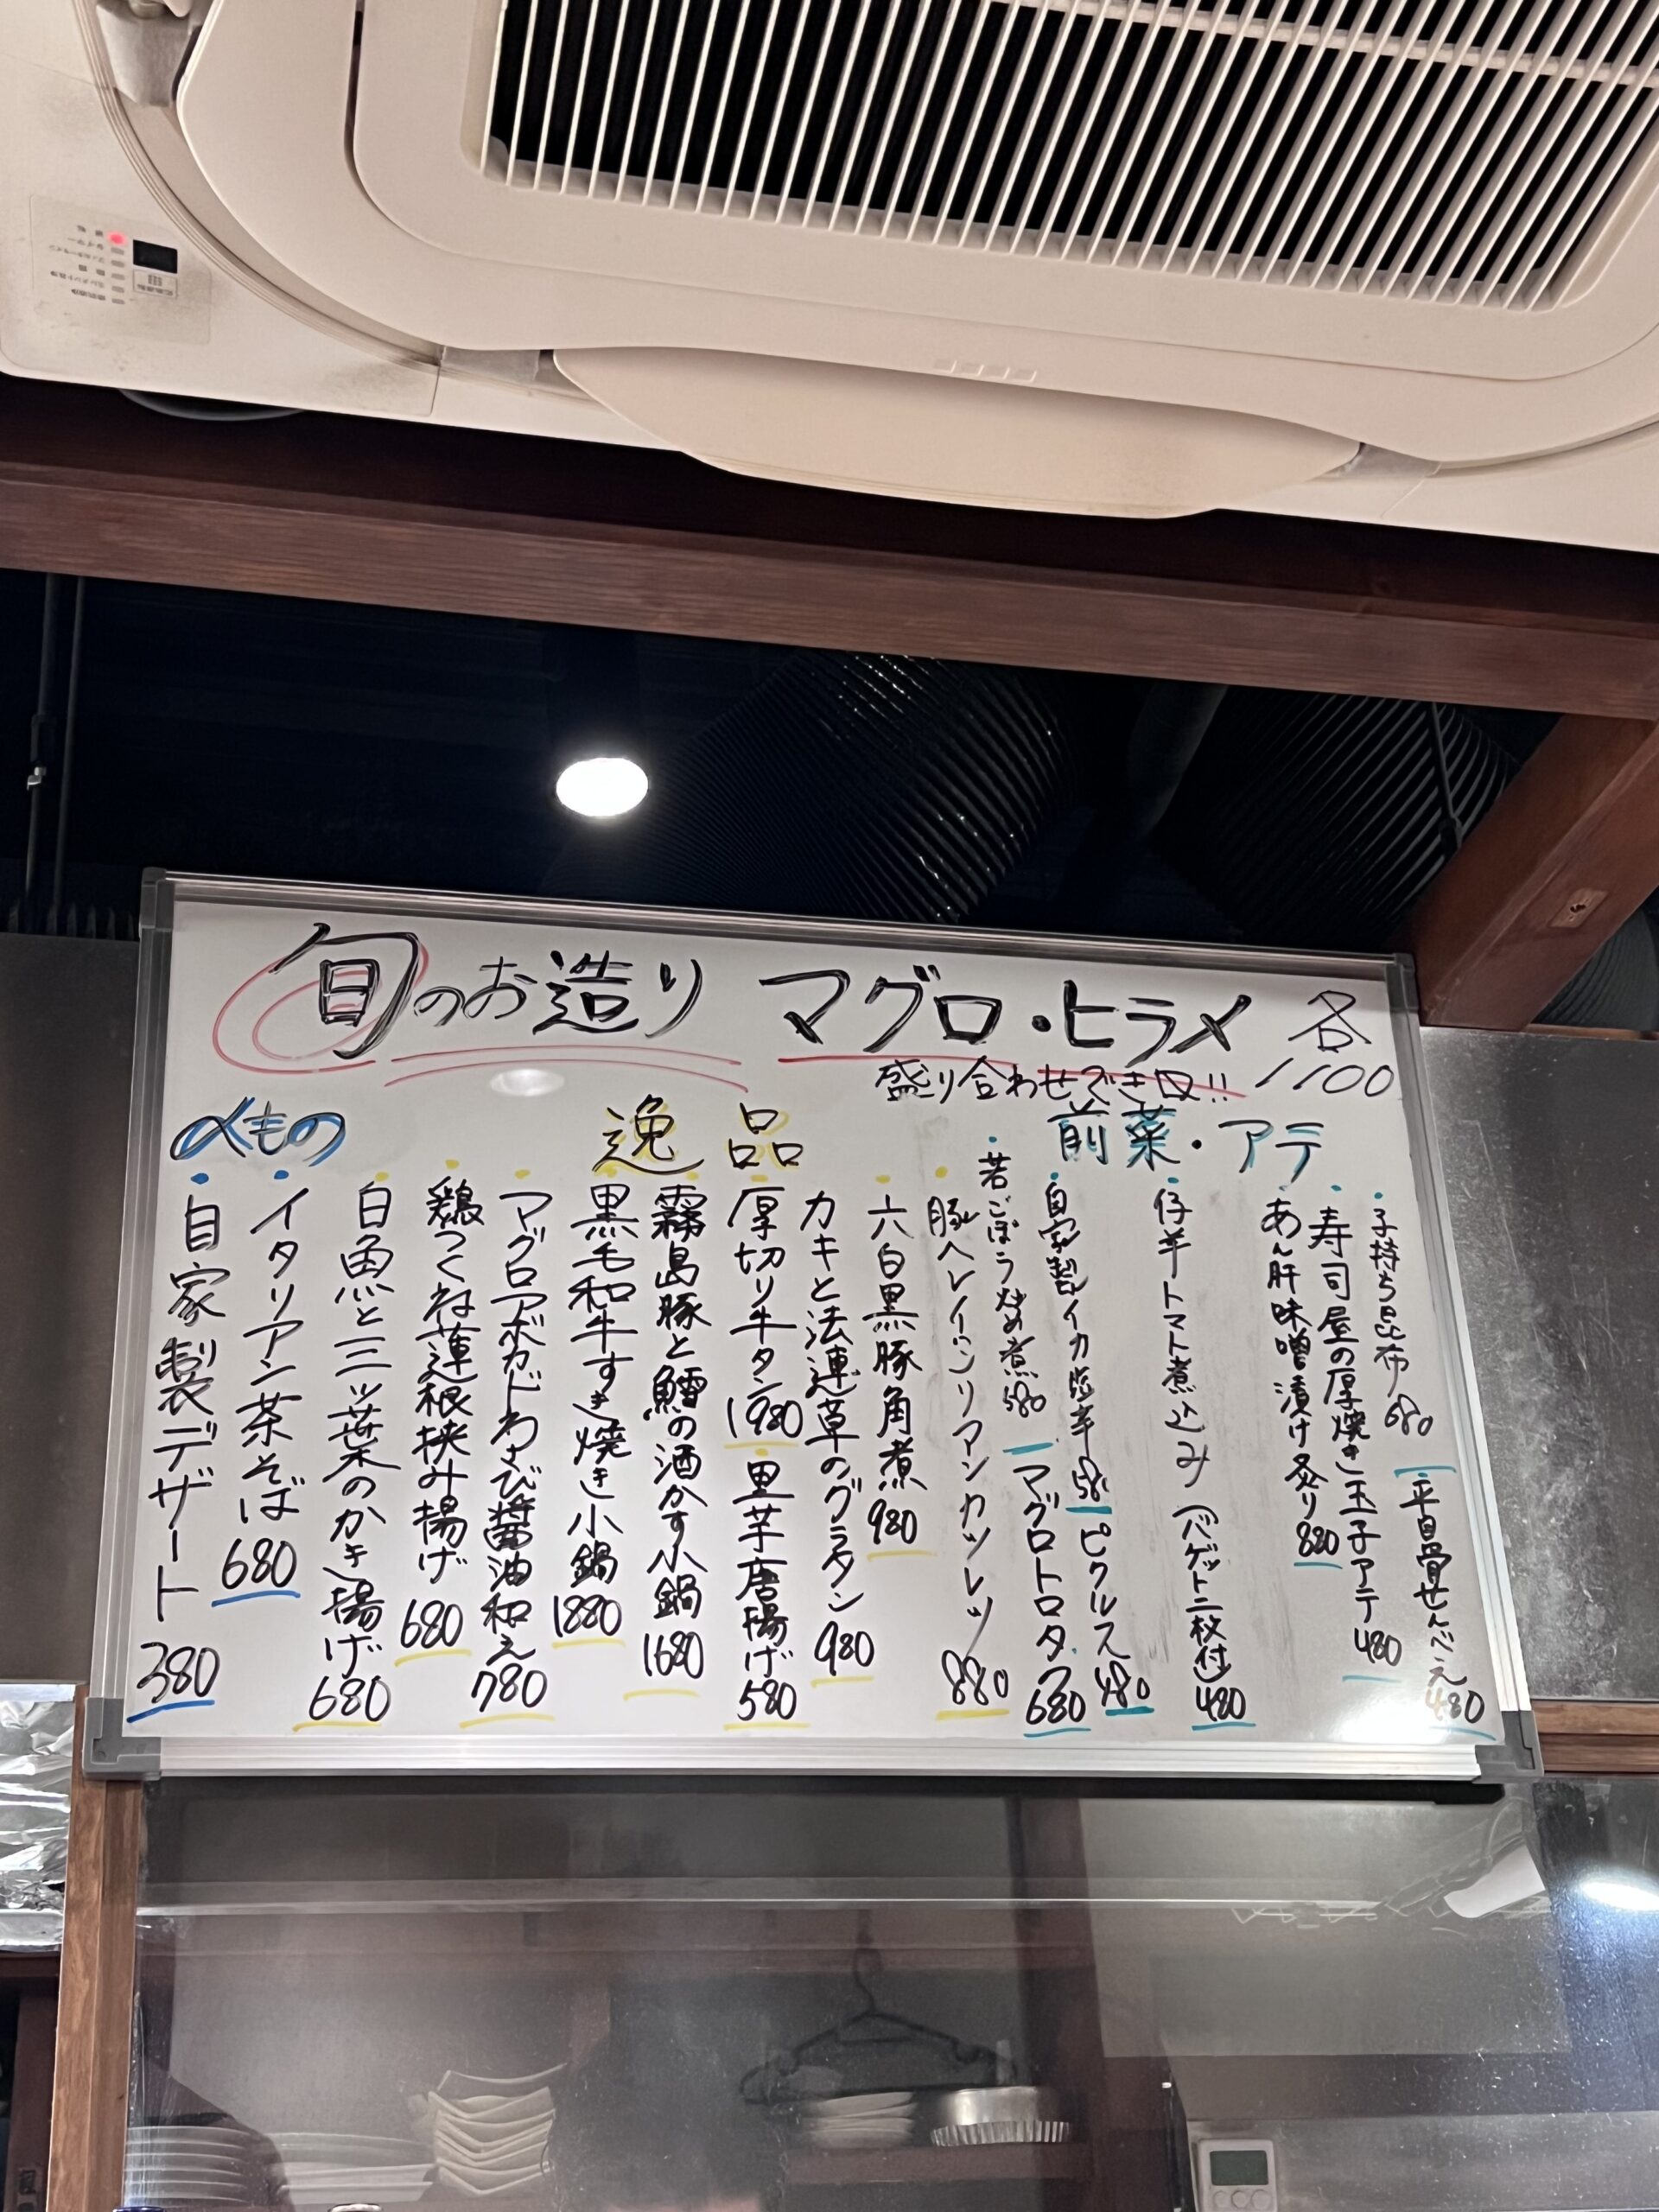 旬のお造り マグロ・ヒラメ 各1100
盛り合わせでき〼!!
前菜・アテ
子持ち昆布 680
平目骨せんべえ 480
寿司屋の厚焼き玉子アテ 480
あん肝味噌漬け炙り 880
仔羊トマト煮込み (バゲット二枚付) 480
自家製イカ塩辛 580
ピクルス 480
若ごぼう炒め煮 580
マグロトロタク 680
逸品
豚ヘレイベリコリアンカツレツ 880
六白黒豚角煮 980
カキと法連草のグラタン 980
厚切り牛タン 1980
里芋唐揚げ 580
霧島豚と鱈の酒かす小鍋 1680
黒毛和牛すき焼き小鍋 1880
マグロアボカドわさび醤油和え 780
鶏つくね蓮根挟み揚げ 680
白魚と三ッ葉のかき揚げ 680
〆もの
イタリアン茶そば 680
自家製デザート 380